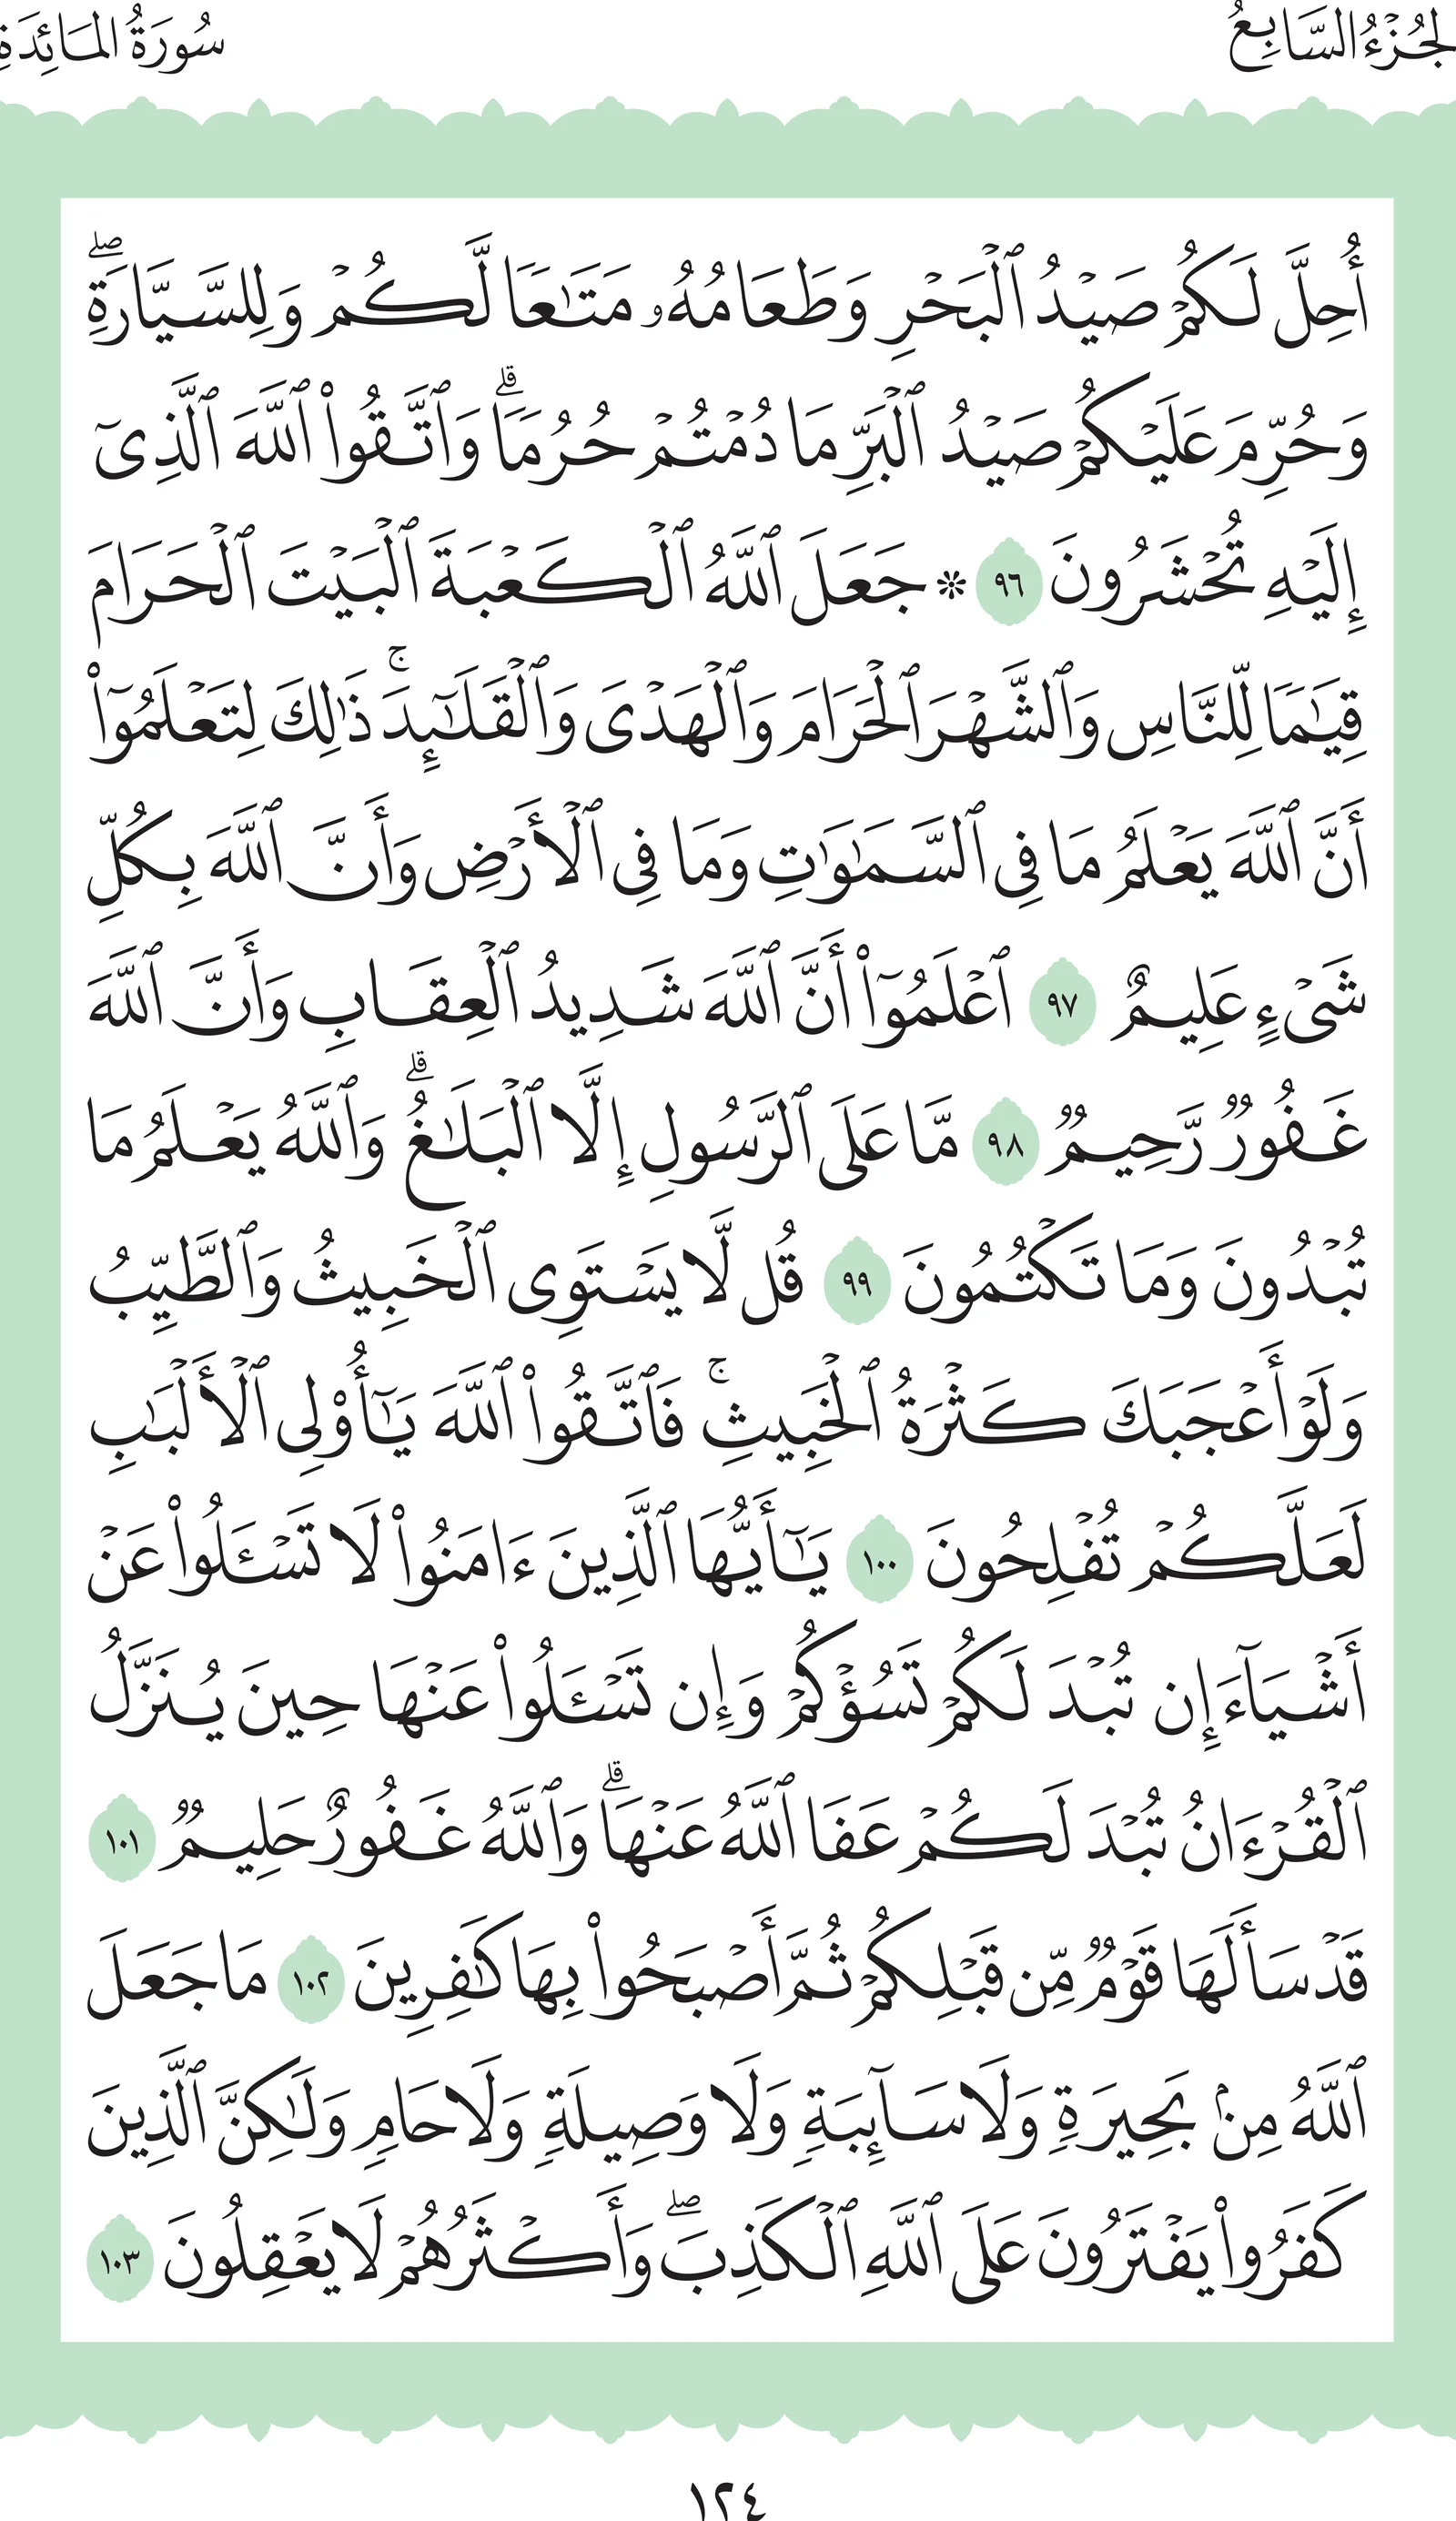 الجُزْءُ السَّابِعُ
سُورَةُ المَائِدَةِ
أُحِلَّ لَكُمۡ صَيۡدُ ٱلۡبَحۡرِ وَطَعَامُهُۥ مَتَٰعٗا لَّكُمۡ وَلِلسَّيَّارَةِۖ
وَحُرِّمَ عَلَيۡكُمۡ صَيۡدُ ٱلۡبَرِّ مَا دُمۡتُمۡ حُرُمٗاۗ وَٱتَّقُواْ ٱللَّهَ ٱلَّذِيٓ
إِلَيۡهِ تُحۡشَرُونَ ٩٦ ۞ جَعَلَ ٱللَّهُ ٱلۡكَعۡبَةَ ٱلۡبَيۡتَ ٱلۡحَرَامَ
قِيَٰمٗا لِّلنَّاسِ وَٱلشَّهۡرَ ٱلۡحَرَامَ وَٱلۡهَدۡيَ وَٱلۡقَلَٰٓئِدَۚ ذَٰلِكَ لِتَعۡلَمُوٓاْ
أَنَّ ٱللَّهَ يَعۡلَمُ مَا فِي ٱلسَّمَٰوَٰتِ وَمَا فِي ٱلۡأَرۡضِ وَأَنَّ ٱللَّهَ بِكُلِّ
شَيۡءٍ عَلِيمٌ ٩٧ ٱعۡلَمُوٓاْ أَنَّ ٱللَّهَ شَدِيدُ ٱلۡعِقَابِ وَأَنَّ ٱللَّهَ
غَفُورٞ رَّحِيمٞ ٩٨ مَّا عَلَى ٱلرَّسُولِ إِلَّا ٱلۡبَلَٰغُۗ وَٱللَّهُ يَعۡلَمُ مَا
تُبۡدُونَ وَمَا تَكۡتُمُونَ ٩٩ قُل لَّا يَسۡتَوِي ٱلۡخَبِيثُ وَٱلطَّيِّبُ
وَلَوۡ أَعۡجَبَكَ كَثۡرَةُ ٱلۡخَبِيثِۚ فَٱتَّقُواْ ٱللَّهَ يَٰٓأُوْلِي ٱلۡأَلۡبَٰبِ
لَعَلَّكُمۡ تُفۡلِحُونَ ١٠٠ يَٰٓأَيُّهَا ٱلَّذِينَ ءَامَنُواْ لَا تَسۡـَٔلُواْ عَنۡ
أَشۡيَآءَ إِن تُبۡدَ لَكُمۡ تَسُؤۡكُمۡ وَإِن تَسۡـَٔلُواْ عَنۡهَا حِينَ يُنَزَّلُ
ٱلۡقُرۡءَانُ تُبۡدَ لَكُمۡ عَفَا ٱللَّهُ عَنۡهَاۗ وَٱللَّهُ غَفُورٌ حَلِيمٞ ١٠١
قَدۡ سَأَلَهَا قَوۡمٞ مِّن قَبۡلِكُمۡ ثُمَّ أَصۡبَحُواْ بِهَا كَٰفِرِينَ ١٠٢ مَا جَعَلَ
ٱللَّهُ مِنۢ بَحِيرَةٖ وَلَا سَآئِبَةٖ وَلَا وَصِيلَةٖ وَلَا حَامٖ وَلَٰكِنَّ ٱلَّذِينَ
كَفَرُواْ يَفۡتَرُونَ عَلَى ٱللَّهِ ٱلۡكَذِبَۖ وَأَكۡثَرُهُمۡ لَا يَعۡقِلُونَ ١٠٣
١٢٤